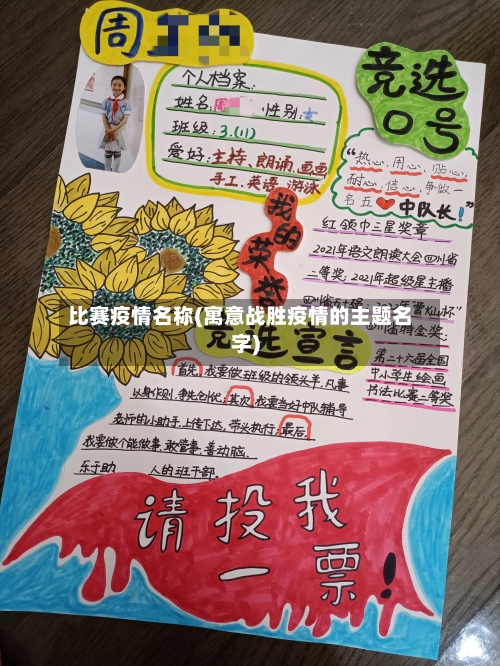 周
个人档案:
姓名:周 性别:女
班级:3.(11)
爱好:主持、朗诵、画画
手工、英语、游泳
竞选
口号
“热心,用心,贴心,
耐心,信心,争做一
名五 中队长!”
我的荣誉
红领巾三星奖章
2021年语文朗读大会四川省
二等奖;2021年超级星主播
比赛疫情名称(寓意战胜疫情的主题名
字)
四川省特金奖;
第二十六届全国
中小学生绘画
书法比赛二等奖
竞选宣言
首先,我要做班级的领头羊,凡事
以身作则,争先创优;其次,我要当好中队辅导
老师的小助手,上传下达,带头执行;最后,
我要做个能做事、敢管事、善动脑、
乐于助 人的班干部。
请投我
一票!